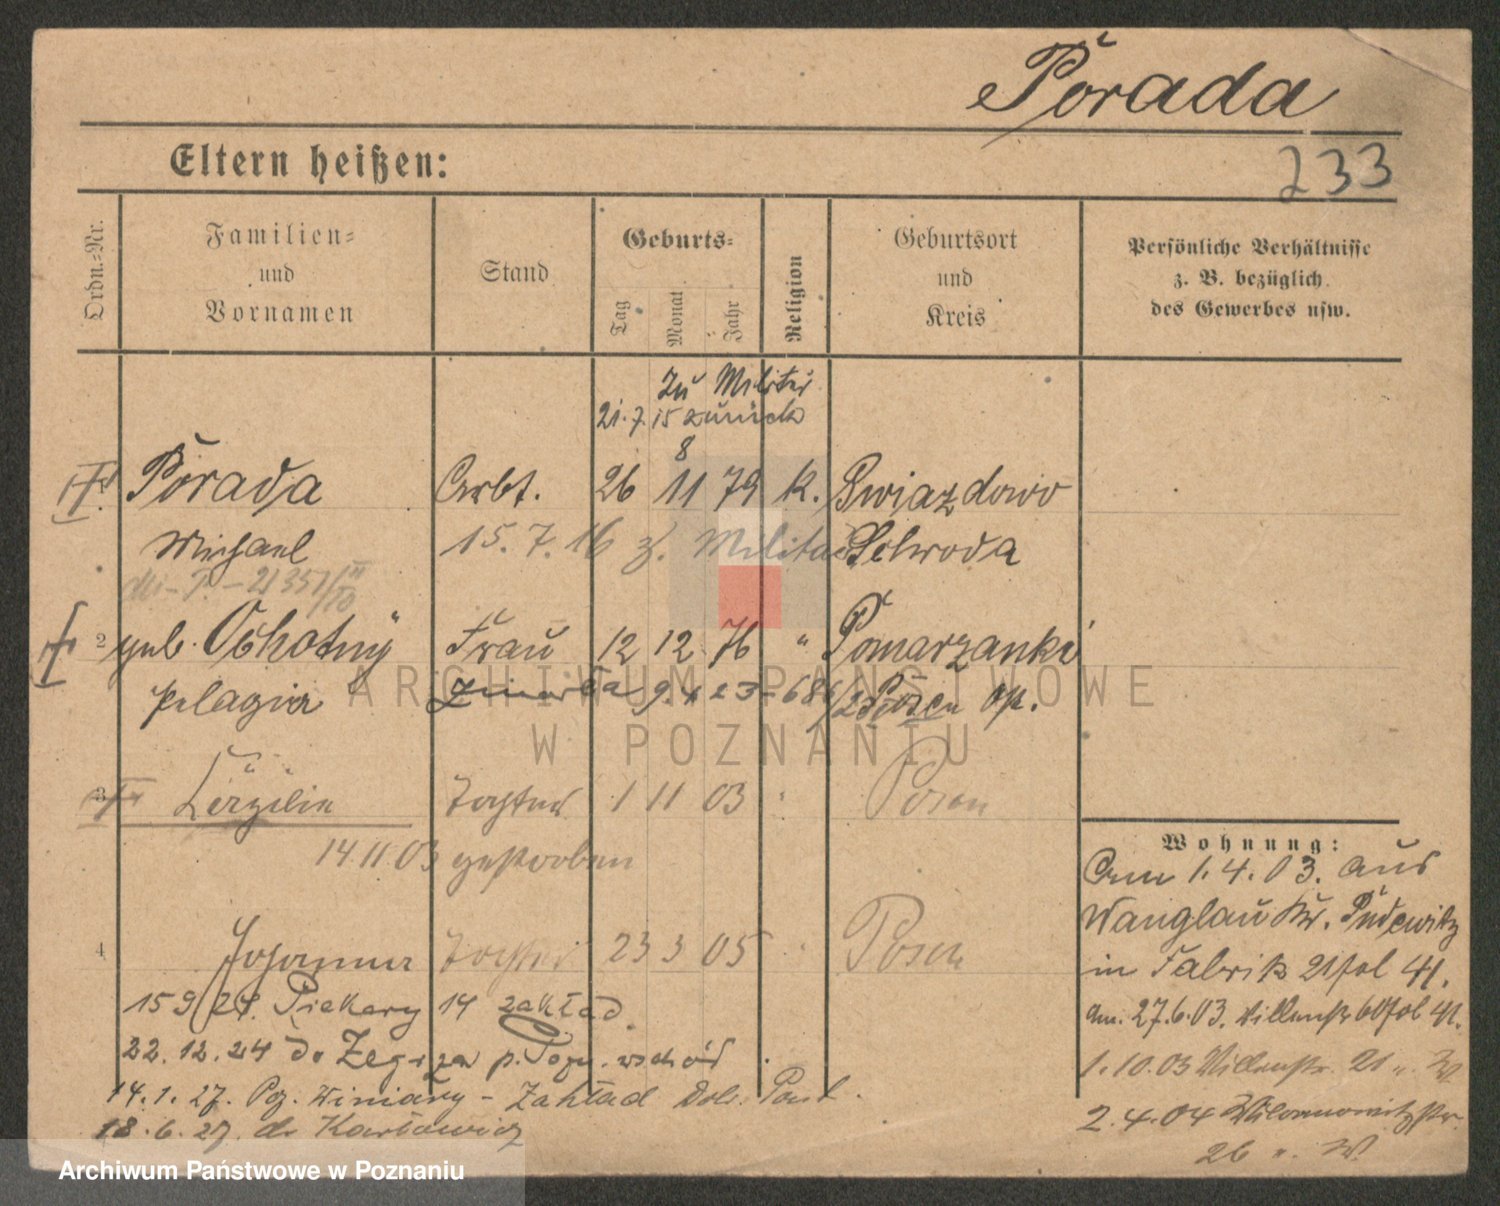 Porada
Eltern heißen:
233
Ordn.-Nr.
Familien-
und
Vornamen
Stand
Geburts-
Tag
Monat
Jahr
Religion
Geburtsort
und
Kreis
Persönliche Verhältnisse
z. B. bezüglich
des Gewerbes usw.
Zu Militär
21.7.15 zurück
8
1 Porada Arbt. 26 11 79 k. Gwiazdowo
Michael 15.7.16 z. Militär Schroda
2 geb. Ochotny Frau 12 12 76 " Pomarzanki
Pelagia 9.4 23 Posen
3 Cäzilie Tochter 1 11 03 Posen
14 11 03 gestorben
4 Johanna Tochter 23 3 05 Posen
15 9 24. Piekary 14 zakład
22.12.24 do Zegrza p. Pozn. wschód
14.1.27. Winiary - Zakład
18.6.27. do
Wohnung:
Am 1.4.03. aus
Wanglau Kr. Pudewitz
in Fabrik 21
am 27.6.03.
1.10.03 21 W
2.4.04
26 W
ARCHIWUM PAŃSTWOWE
W POZNANIU
Archiwum Państwowe w Poznaniu